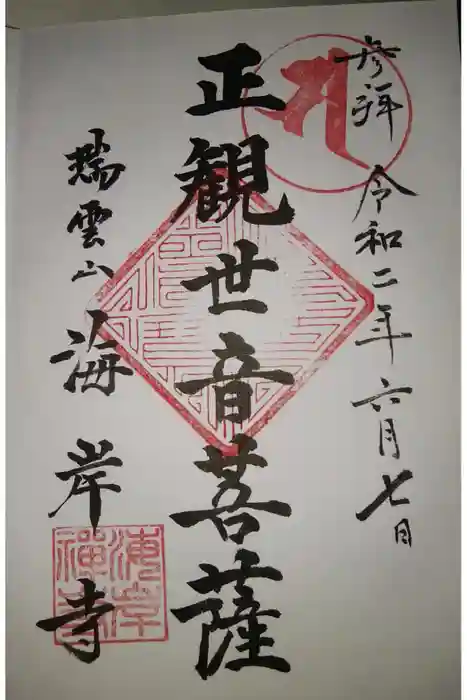 参拝 令和二年六月七日
正観世音菩薩
瑞雲山 海岸寺
海岸
禅寺